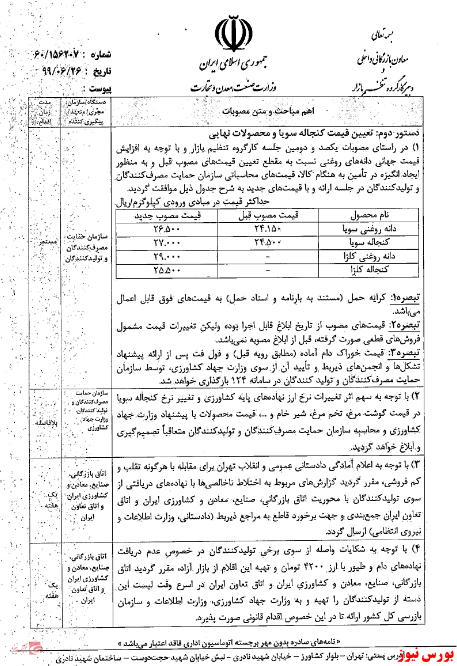 بسمه تعالی
معاون بازرگانی داخلی
و
دبیر کارگروه تنظیم بازار
جمهوری اسلامی ایران
وزارت صنعت، معدن و تجارت
شماره : ۶۰/۱۵۶۲۰۷
تاریخ : ۹۹/۰۶/۲۶
پیوست :
اهم مباحث و متن مصوبات
دستگاه/سازمان
مجری/متولی/
پیگیری کننده
مدت
زمان
اقدام
دستور دوم: تعیین قیمت کنجاله سویا و محصولات نهایی
۱) در راستای مصوبات یکصد و دومین جلسه کارگروه تنظیم بازار و با توجه به افزایش
قیمت جهانی دانه‌های روغنی نسبت به مقطع تعیین قیمت‌های مصوب قبل و به منظور
ایجاد انگیزه در تأمین به هنگام کالا، قیمت‌های محاسباتی سازمان حمایت مصرف‌کنندگان
و تولیدکنندگان در جلسه ارائه و با قیمت‌های جدید به شرح جدول ذیل موافقت گردید.
حداکثر قیمت در مبادی ورودی کیلوگرم/ریال
نام محصول قیمت مصوب قبل قیمت مصوب جدید
دانه روغنی سویا ۲۴.۱۵۰ ۲۶.۵۰۰
کنجاله سویا ۲۴.۵۰۰ ۲۷.۰۰۰
دانه روغنی کلزا - ۲۹.۰۰۰
کنجاله کلزا - ۲۵.۵۰۰
تبصره۱: کرایه حمل (مستند به بارنامه و اسناد حمل) به قیمت‌های فوق قابل اعمال
می‌باشد.
تبصره۲: قیمت‌های مصوب از تاریخ ابلاغ قابل اجرا بوده ولیکن تغییرات قیمت مشمول
فروش‌های قطعی صورت گرفته، قبل از ابلاغ مصوبه نمی‌باشد.
تبصره۳: قیمت خوراک دام آماده (مطابق رویه قبل) و فول فت پس از ارائه پیشنهاد
تشکل‌ها و انجمن‌های ذیربط و تأیید آن از سوی وزارت جهاد کشاورزی، توسط سازمان
حمایت مصرف‌کنندگان و تولید کنندگان در سامانه ۱۲۴ بارگذاری خواهد شد.
سازمان حمایت
مصرف‌کنندگان
و تولیدکنندگان
مستمر
۲) با توجه به سهم اثر تغییرات نرخ ارز نهاده‌های پایه کشاورزی و تغییر نرخ کنجاله سویا
در قیمت گوشت مرغ، تخم مرغ، شیر خام و ...، قیمت محصولات با پیشنهاد وزارت جهاد
کشاورزی و محاسبه سازمان حمایت مصرف‌کنندگان و تولیدکنندگان متعاقباً تصمیم‌گیری
و ابلاغ خواهد گردید.
سازمان حمایت
مصرف‌کنندگان و
تولید کنندگان
وزارت جهاد
کشاورزی
بلافاصله
۳) با توجه به اعلام آمادگی دادستانی عمومی و انقلاب تهران برای مقابله با هرگونه تقلب و
کم فروشی، مقرر گردید گزارش‌های مربوط به اختلاط ناخالصی‌ها با نهاده‌های دریافتی از
سوی تولیدکنندگان با محوریت اتاق بازرگانی، صنایع، معادن و کشاورزی ایران و اتاق
تعاون ایران جمع‌بندی و جهت برخورد قاطع به مراجع ذیربط (دادستانی، وزارت اطلاعات و
نیروی انتظامی) ارسال گردد.
اتاق بازرگانی،
صنایع، معادن و
کشاورزی ایران
و اتاق تعاون
ایران
یک
هفته
۴) با توجه به شکایات واصله از سوی برخی تولیدکنندگان در خصوص عدم دریافت
نهاده‌های دام و طیور با ارز ۴۲۰۰ تومان و تهیه این اقلام از بازار آزاد، مقرر گردید اتاق
بازرگانی، صنایع، معادن و کشاورزی ایران و اتاق تعاون ایران در اسرع وقت لیست این
دسته از تولیدکنندگان را تهیه و به وزارت جهاد کشاورزی، وزارت اطلاعات و سازمان
بازرسی کل کشور ارائه تا در این خصوص اقدام قانونی صورت پذیرد.
اتاق بازرگانی،
صنایع، معادن و
کشاورزی ایران
و اتاق تعاون
ایران
یک
هفته
« نامه‌های صادره بدون مهر برجسته اتوماسیون اداری فاقد اعتبار می‌باشد »
آدرس پستی: تهران - بلوار کشاورز - خیابان شهید نادری - نبش خیابان شهید حجت‌دوست - ساختمان شهید نادری
بورس نیوز